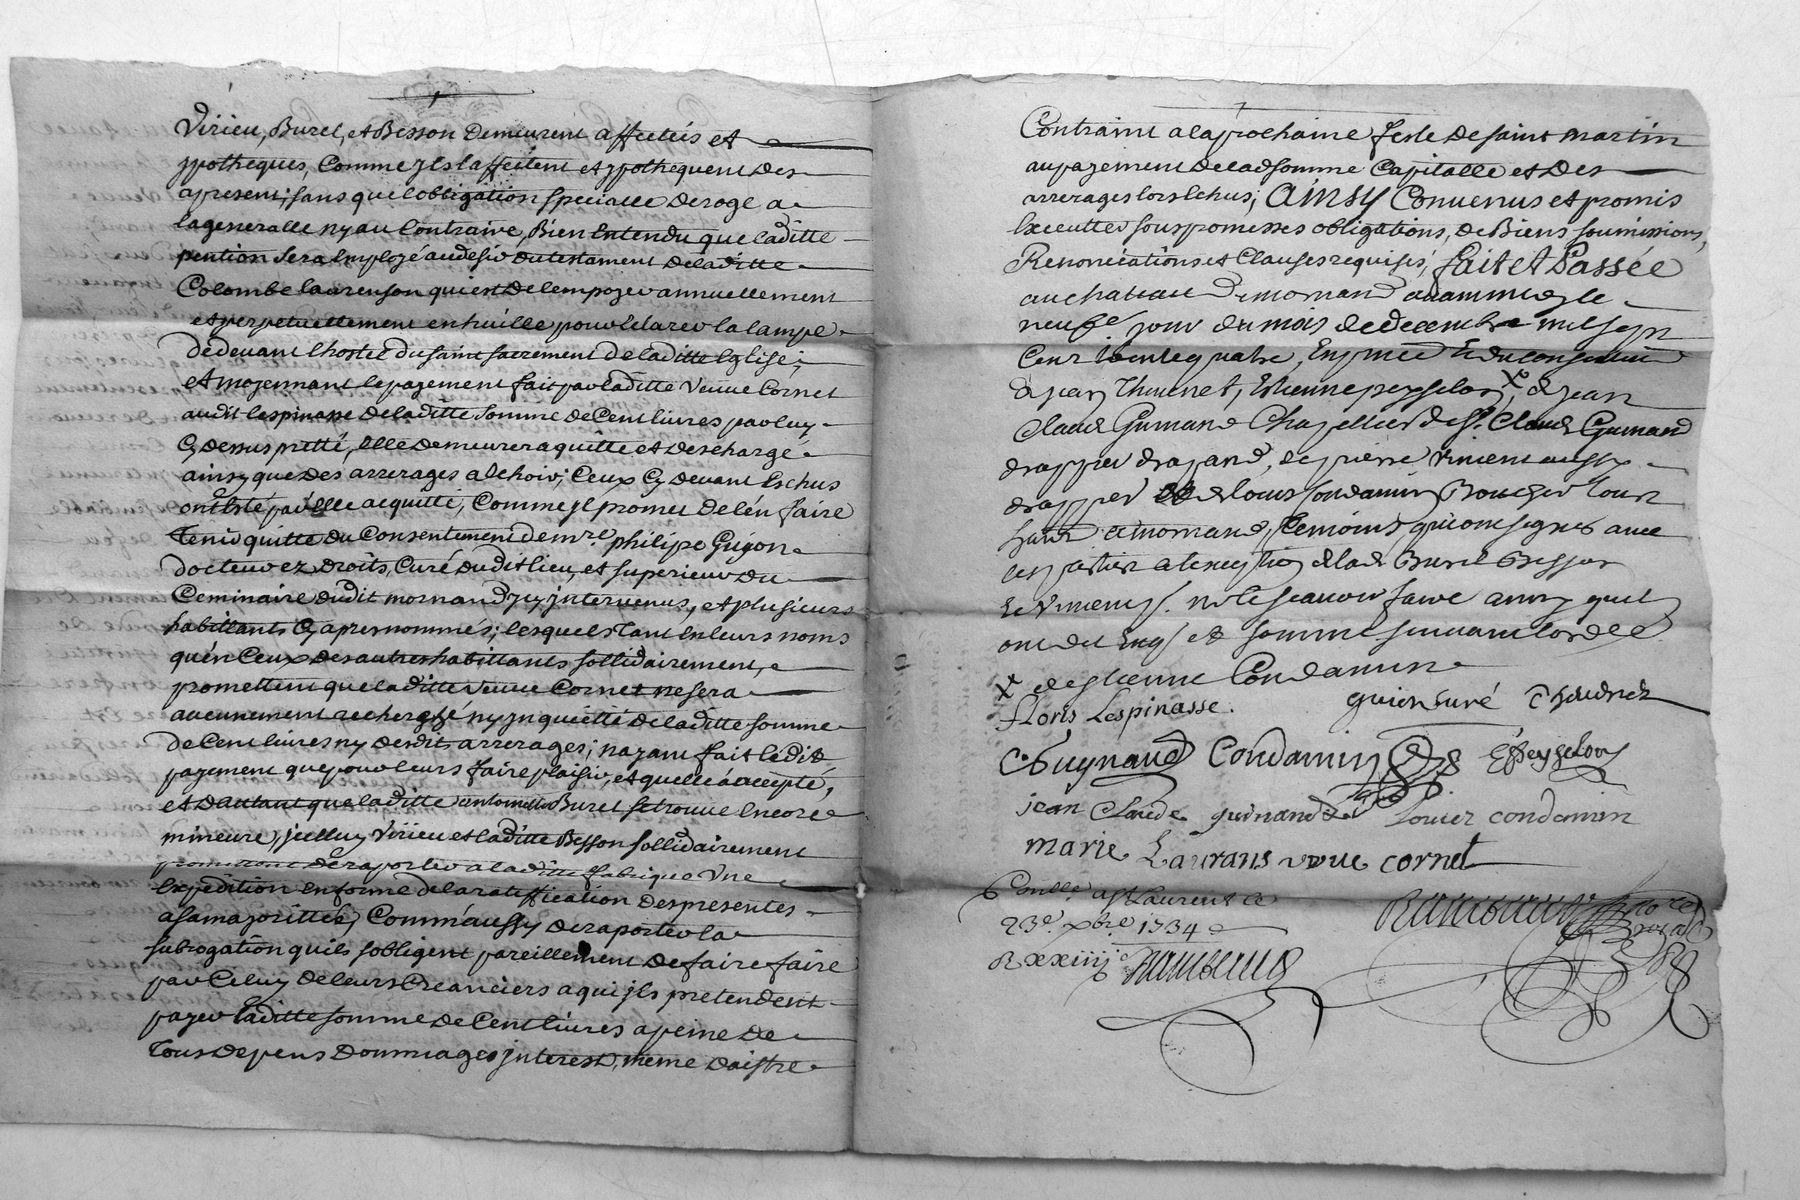 Virieu, Buret, et Besson demeurent affectés et
ypotheques, Comme jls laffectent et ypothequent des
apresent; sans que lobbligation specialle deroge a
lageneralle ny au Contraire, Bien Entendu que laditte
pention sera Employé audesir dutestament delàditte
Colombe laurenson qui est de lempoyer annuellement
et perpetuellement en huille pour Éclarer la lampe
dedevant lhostel du saint sacrement de laditte Eglise;
et moyennant le payement fait par laditte Veuve Cornet
audit Lespinasse delàditte somme de Cent livres par luy
Cy dessus pretté, Elle demeurera quitte et deschargé
ainsy que des arrerages a Echoir; Ceux Cy devant Eschus
ont Esté par Elle acquitté, Comme jl promet de lén faire
tenir quitte du Consentement de mre philipe Guyon
docteur ez droits, Curé dudit lieu, et superieur du
Ceminaire dudit mornand y intervenus, et plusieurs
habittants Cy apres nommés; lesquels tant En leurs noms
quén Ceux des autres habittants sollidairement,
promettent que laditte veuve Cornet ne sera
aucunement recherché ny jnquietté de laditte somme
de Cent livres ny desdits arrerages; nayant fait ledit
payement que pour leurs faire plaisir, et quelle à accepté,
et dautant que laditte antoinette Buret se trouve Encore
mineure, jcelluy Virieu et laditte Besson sollidairement
promettent de raporter a laditte fabrique Une
Expedition en forme de la ratiffication des presentes
a sa majorittée, Comm'aussy de raporter la
subrogation quils sobligent pareillement de faire faire
par Celuy de leurs Creanciers a qui jls pretendent
payer laditte somme de Cent livres a peine de
Tous depens dommages jnterest, meme daistre
Contraint a la prochaine feste de saint martin
au payement de lad somme Capitalle et des
arrerages lors Echus; Ainsy Convenus et promis
Executter sous promesses obligations, de Biens soumissions,
Renonciations et Clauses requises, fait et Passée
au chateau de mornand avant midy le
neufe jour du mois de decembre mil sept
Cent trente quatre, En pnce Et du consentement
de jean Thurnet, Estienne peysselon X, de jean
Claude Guinand Chapellier de St. Claude Guinand
drappier drapand, de pierre Vincent aussy
drappier de louis Condamin Boucher tous
habts a mornand, temoins qui ont signes avec
les parties a lexeption de lad Buret Besson
le Vincent p. ne le scavoir faire ainsy quil
ont dit Enqs et sommes suivant lordce
X de Etienne Condamin
floris Lespinasse. guion curé Thurnet
C Guynand Condamin EPeysselon
jean Claude guinand Louis condamin
marie Laurans veuve cornet
Conllé a St Laurent le
23e. xbre 1734
R xxiiij s